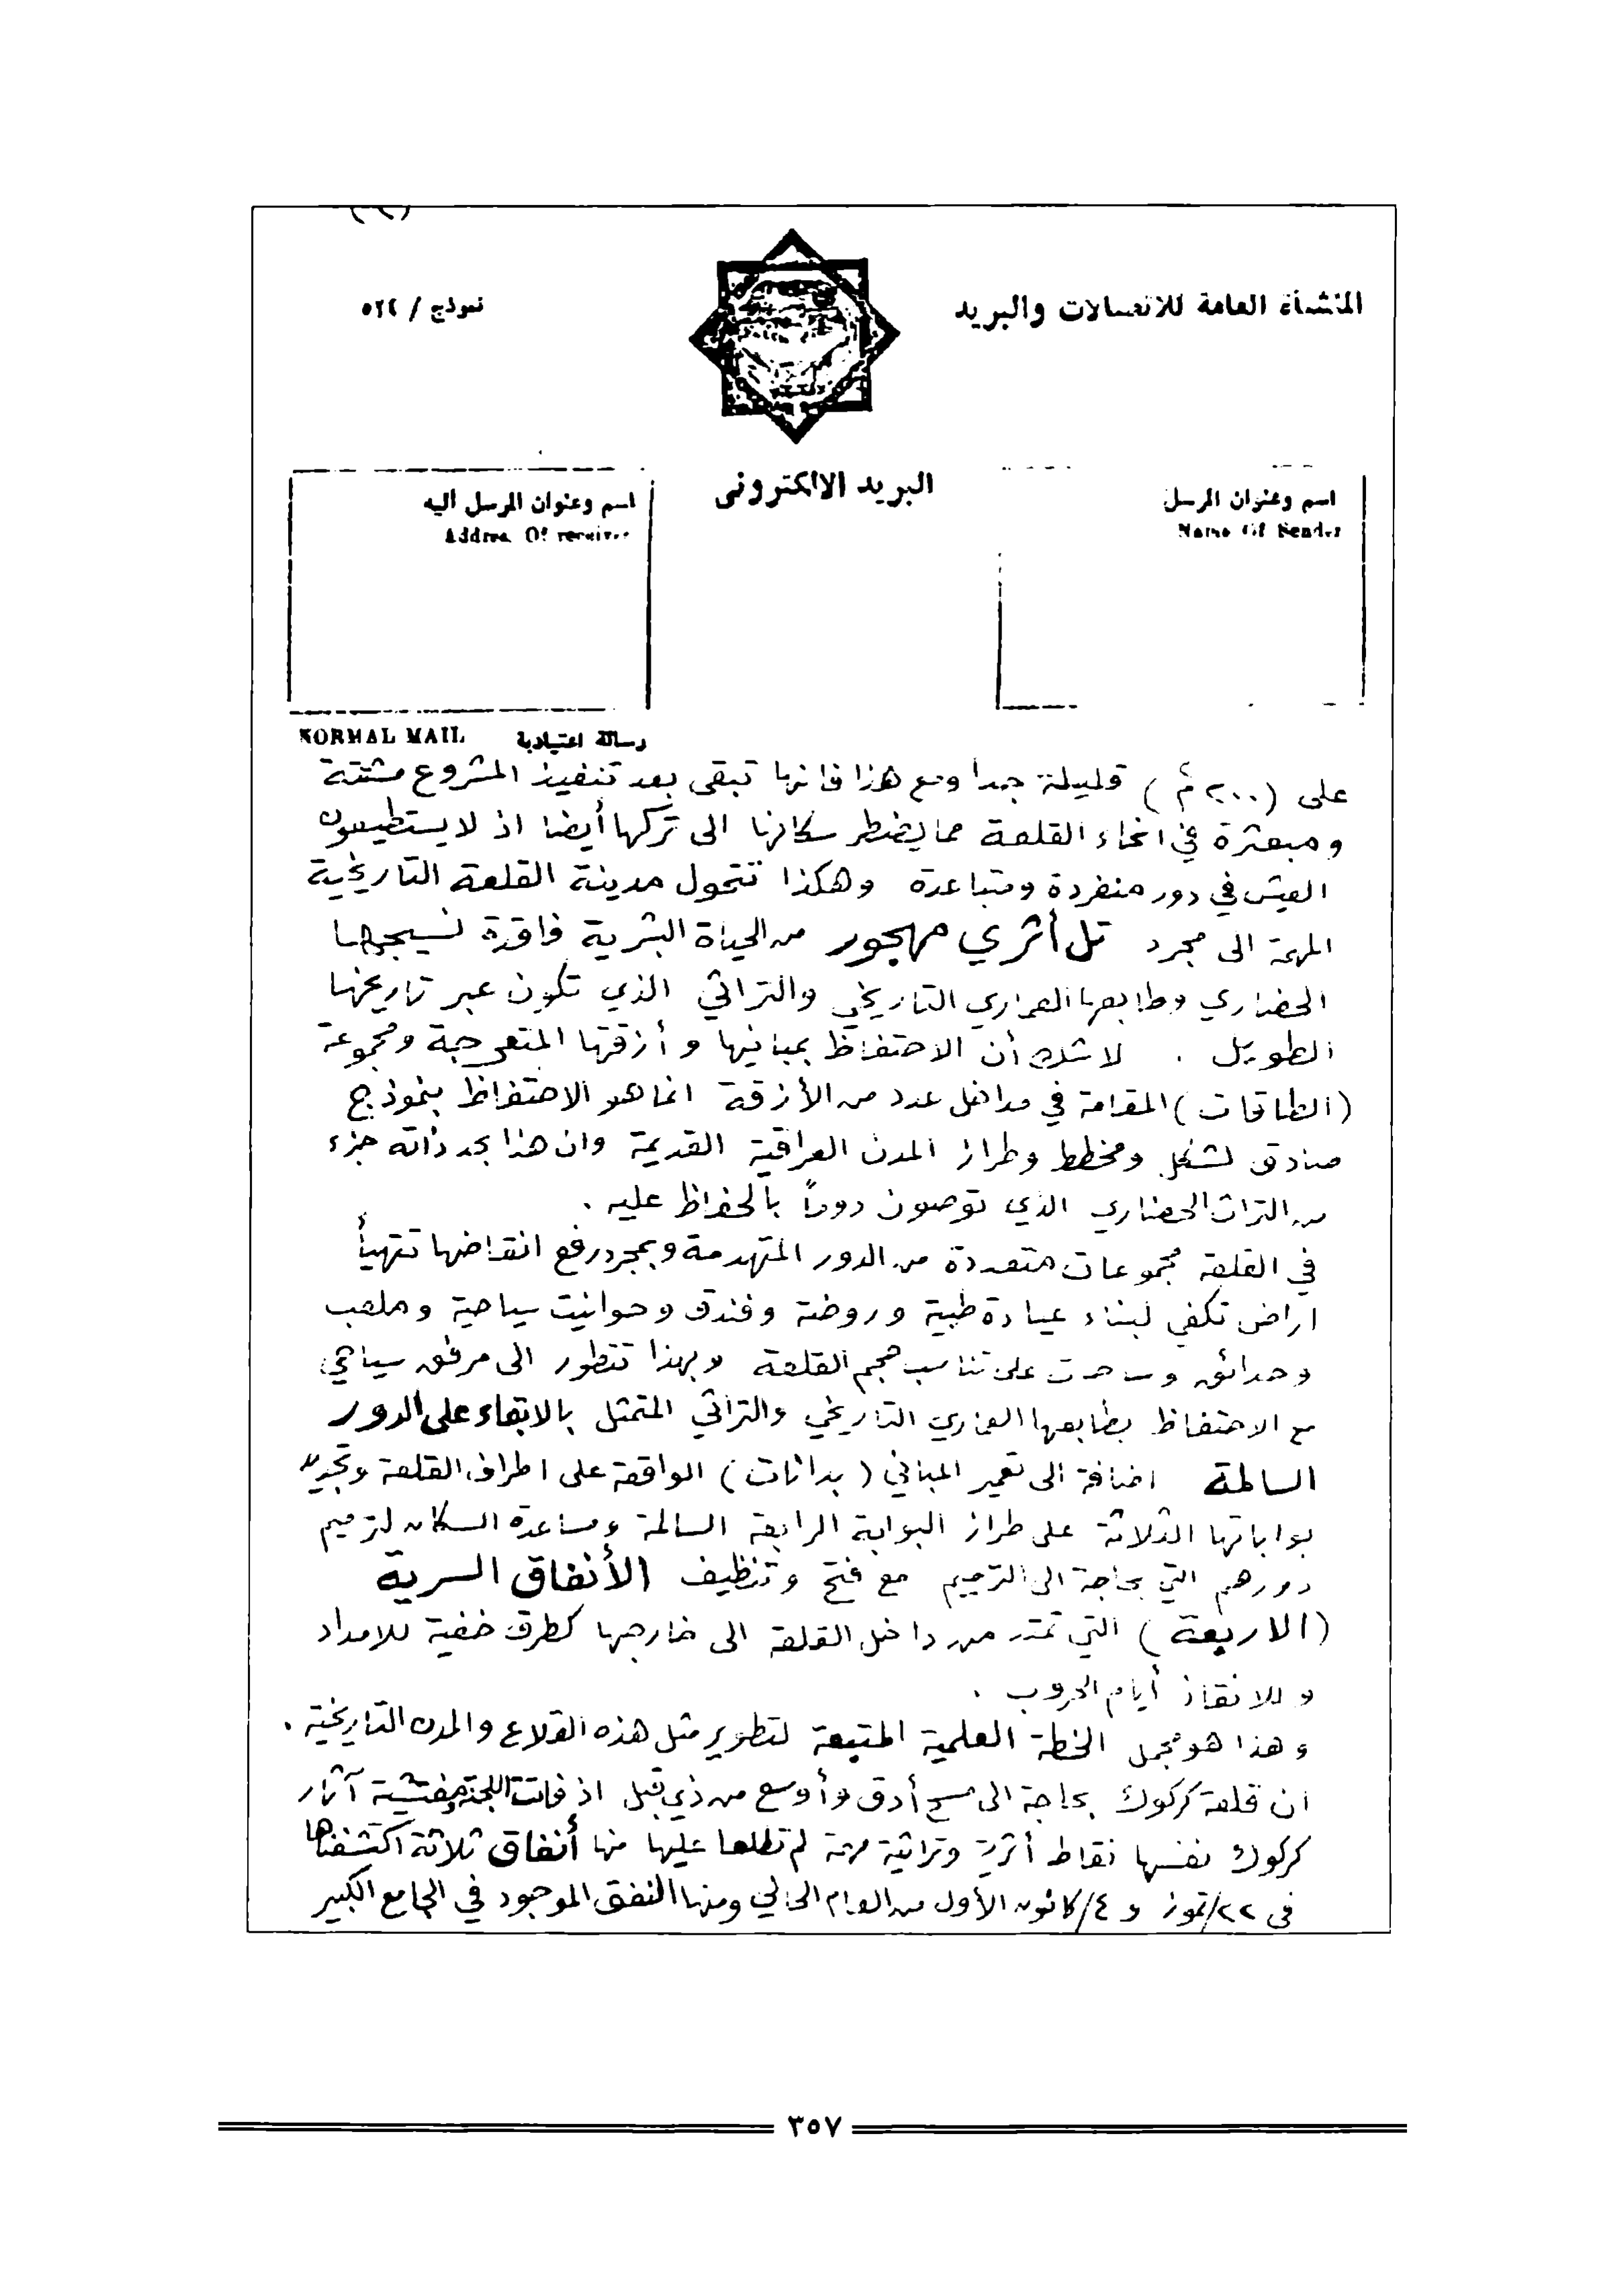 المنشأة العامة للاتصالات والبريد
نموذج / ٥٢٤
البريد الالكتروني
اسم وعنوان المرسل
Name Of Sender
اسم وعنوان المرسل اليه
Addres Of receiver
رسالة اعتيادية NORMAL MAIL
على (٢٠٠ م٢) قليلة جداً ومع هذا فانها تبقى بعد تنفيذ المشروع مشتتة
ومبعثرة في انحاء القلعة مما يضطر سكانها الى تركها أيضا اذ لا يستطيعون
العيش في دور منفردة ومتباعدة وهكذا تتحول مدينة القلعة التاريخية
المهمة الى مجرد تل أثري مهجور من الحياة البشرية فاقدة نسيجها
الحضاري وطابعها العماري التاريخي والتراثي الذي تكون عبر تاريخها
الطويل . لا شك أن الاحتفاظ بمبانيها وأزقتها المتعرجة ومجموعة
(الطاقات) المقامة في مداخل عدد من الأزقة انما هو الاحتفاظ بنموذج
صادق لشكل ومخطط وطراز المدن العراقية القديمة وان هذا بحد ذاته جزء
من التراث الحضاري الذي توصون دوماً بالحفاظ عليه .
في القلعة مجموعات متعددة من الدور المتهدمة وبمجرد رفع انقاضها تتهيأ
اراض تكفي لبناء عيادة طبية وروضة وفندق وحوانيت سياحية وملعب
وحدائق وساحات على تناسب حجم القلعة وبهذا تتطور الى مرفق سياحي
مع الاحتفاظ بطابعها العماري التاريخي والتراثي المتمثل بالابقاء على الدور
السالمة اضافة الى تعمير المباني (بدانات) الواقعة على اطراف القلعة وتجديد
بواباتها الثلاثة على طراز البوابة الرابعة السالمة ومساعدة السكان لترميم
دورهم التي بحاجة الى الترميم مع فتح وتنظيف الأنفاق السرية
(الاربعة) التي تمتد من داخل القلعة الى خارجها كطرق خفية للامداد
وللانقاذ أيام الحروب .
وهذا هو مجمل الخطة العلمية المتبعة لتطوير مثل هذه القلاع والمدن التاريخية .
ان قلعة كركوك بحاجة الى مسح أدق وأوسع من ذي قبل اذ فاتت اللجنة ومفتشية آثار
كركوك نفسها نقاط أثرية وتراثية مهمة لم تطلعا عليها منها أنفاق ثلاثة اكتشفناها
في ٢٢/تموز و ٤/كانون الأول من العام الحالي ومنها النفق الموجود في الجامع الكبير
٣٥٧